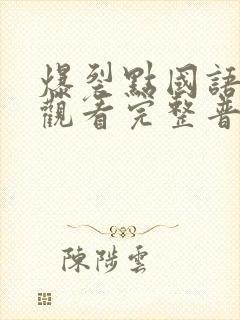 爆裂點國語
觀看完整普
陳陟雲